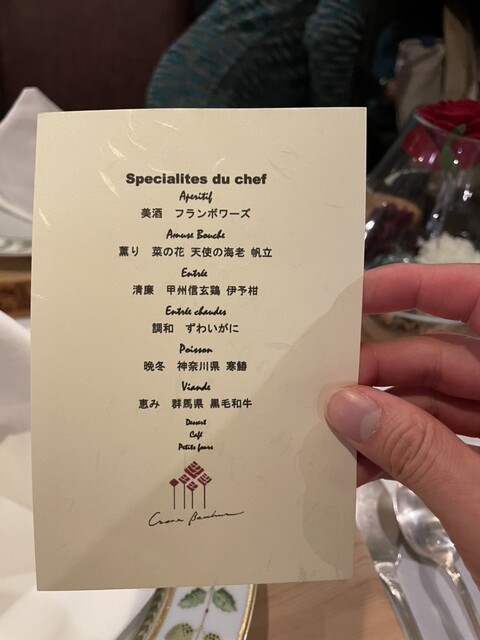 Specialites du chef
Aperitif
美酒　フランボワーズ
Amuse Bouche
薫り　菜の花 天使の海老 帆立
Entrée
清廉　甲州信玄鶏 伊予柑
Entrée chaudes
調和　ずわいがに
Poisson
晩冬　神奈川県 寒鰆
Viande
恵み　群馬県 黒毛和牛
Dessert
Café
Petits fours